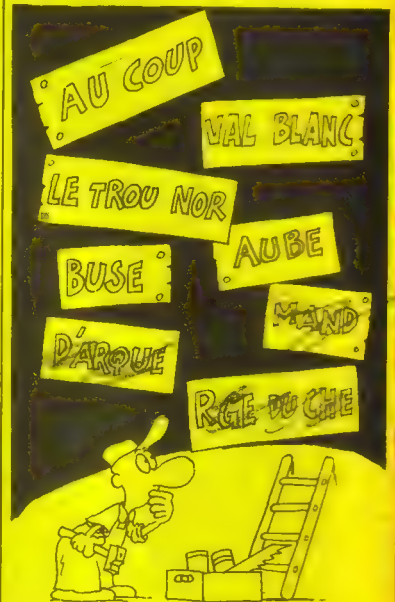 AU COUP
VAL BLANC
LE TROU NOR
AUBE
BUSE
MAND
D'ARQUE
RGE DU CHE